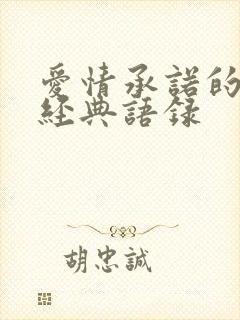 愛情承諾的
經典語錄
胡忠誠